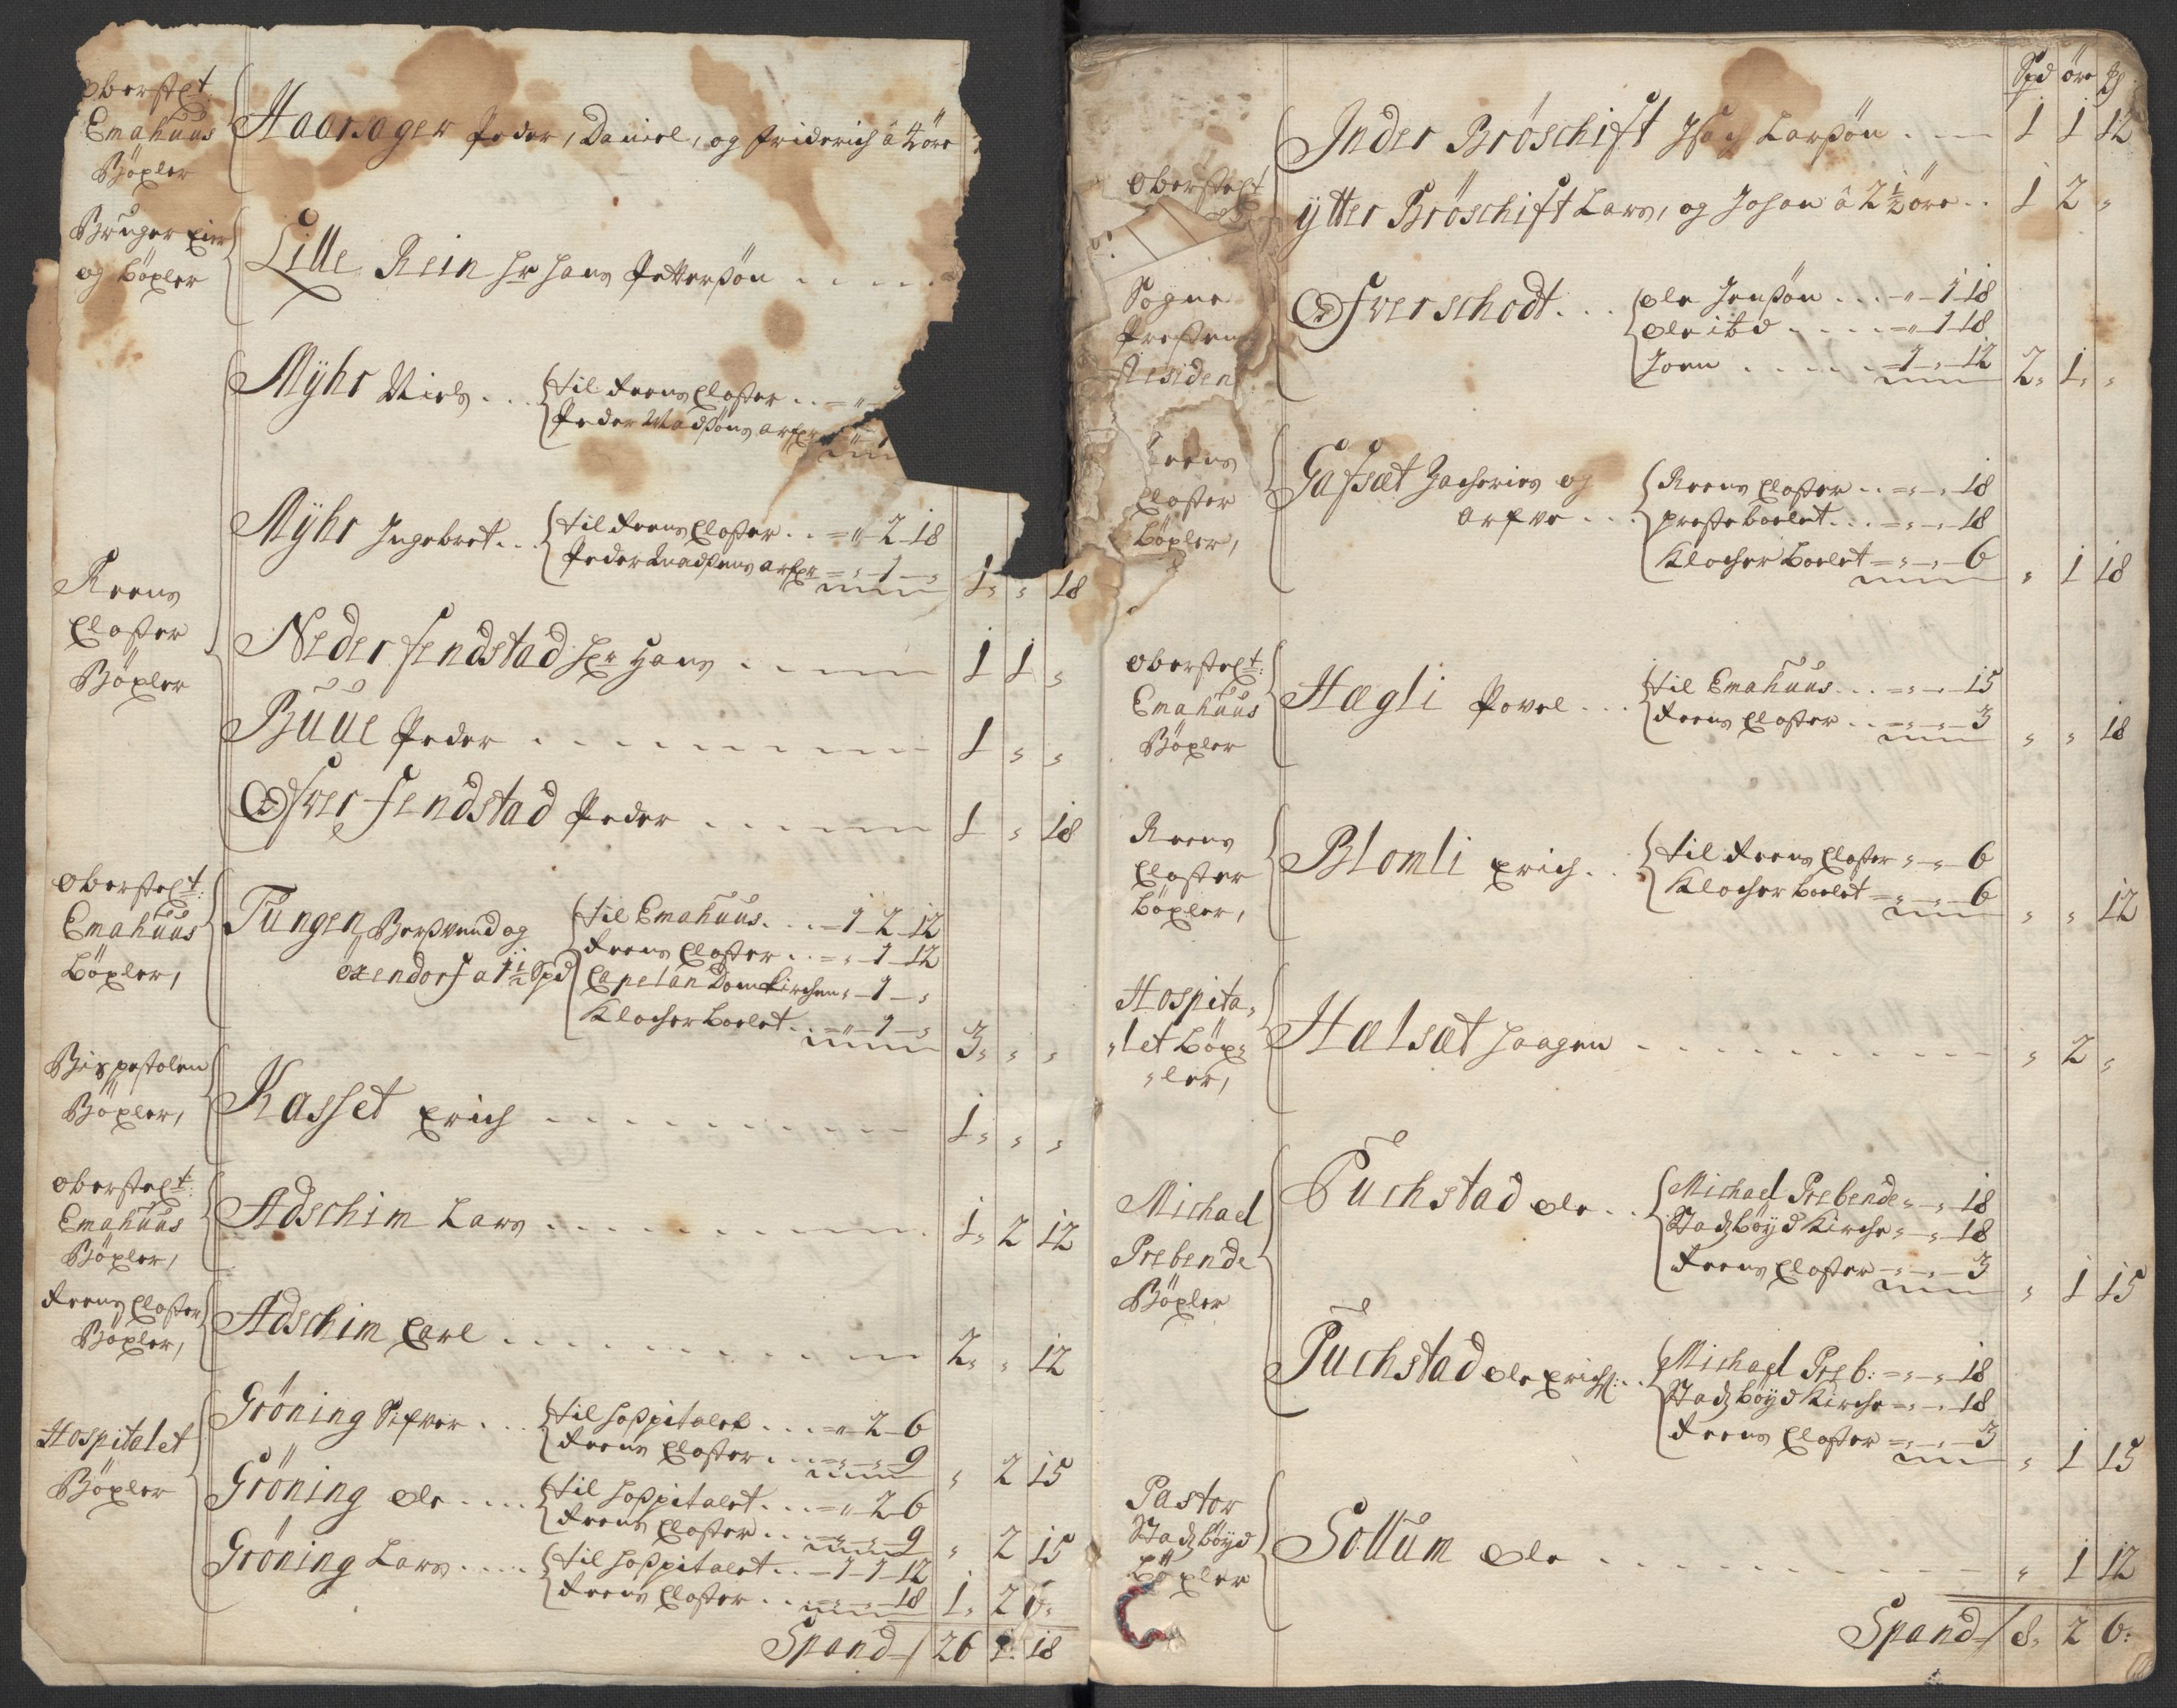 oberstlt:
Emahuus
Böxler
Haarsager Peder, Daniel, og Friderich â 4 öre
Bruger Eier
og Böxler
Lille Rein Hr Hans Petterßön . . . . .
Mÿhr Niels . . . til Reens Closter . . = "
Peder Madßöns arfvr
Mÿhr Ingebret . . . til Reens Closter . . = " 2 18
Peder Madsens arfvr = " 1 "
1 " 18
Reens
Closter
Böxler
Neder Fendstad Hr Hans . . . 1 1 "
Buue Peder . . . . . 1 " "
Ofver Fendstad Peder . . . . 1 " 18
oberstlt:
Emahuus
Böxler,
Tungen, Berßvend og
oxendorf a 1½ Spd
til Emahuus . . . = 1 2 12
Reens Closter . . = " 1 12
Capelan Domkirchen " 1 "
Klocher boelet . . = " 1 "
3 " "
Bispestolen
Böxler,
Kasset Erich . . . . . 1 " "
oberstlt:
Emahuus
Böxler,
Adschim Lars . . . . . 1 2 12
Reens Closter
Böxler,
Adschim Carl . . . . . 2 " 12
Hospitalet
Böxler
Gröning Sifver . . . til Hoßpitalet . . . = " 2 6
Reens Closter . . . = " " 9
" 2 15
Gröning Ole . . . . til Hoßpitalet . . . = " 2 6
Reens Closter . . . = " " 9
" 2 15
Gröning Lars . . . . til Hoßpitalet . . = 1 1 12
Reens Closter . . = " " 18
1 2 6
Spand / 26 1 18
Spd öre
oberstlt
Inder Bröschift Isach Larßön . . . 1 1 12
ÿtter Bröschift Lars, og Johan â 2½ öre . . 1 2 "
Sogne
Presten
Residen
Ofverschodt . . . ole Jenßön . . . = " 1 18
ole ibd . . . . = " 1 18
Joen . . . . . = 1 " 12
2 1 "
Reens
Closter
Böxler,
Gafsæt Zacharies og
arfve . . .
Reens Closter . . = " " 18
presteboelet . . . = " " 18
Klocher boelet = " " 6
" 1 18
oberstlt:
Emahuus
Böxler
Hægli Povel . . . til Emahuus . . . = " " 15
Reens Closter . . = " " 3
" " 18
Reens
Closter
Böxler,
Blomli Erich . . til Reens Closter " " 6
Klocher boelet = " " 6
" " 12
Hospita„
„let Böx„
„ler,
Hælsæt Haagen . . . . . " 2 "
Michael
Prebende
Böxler
Puchstad Ole . . Michael Prebende " " 18
Stadzböÿd Kirche " " 18
Reens Closter = " " 3
" 1 15
Puchstad ole Erichs: . . Michael Preb: = " " 18
Stadzböÿd Kirche = " " 18
Reens Closter = " " 3
" 1 15
Pastor
Stadzböÿd
Böxler
Sollum Ole . . . . . " 1 12
Spand / 8 2 6: